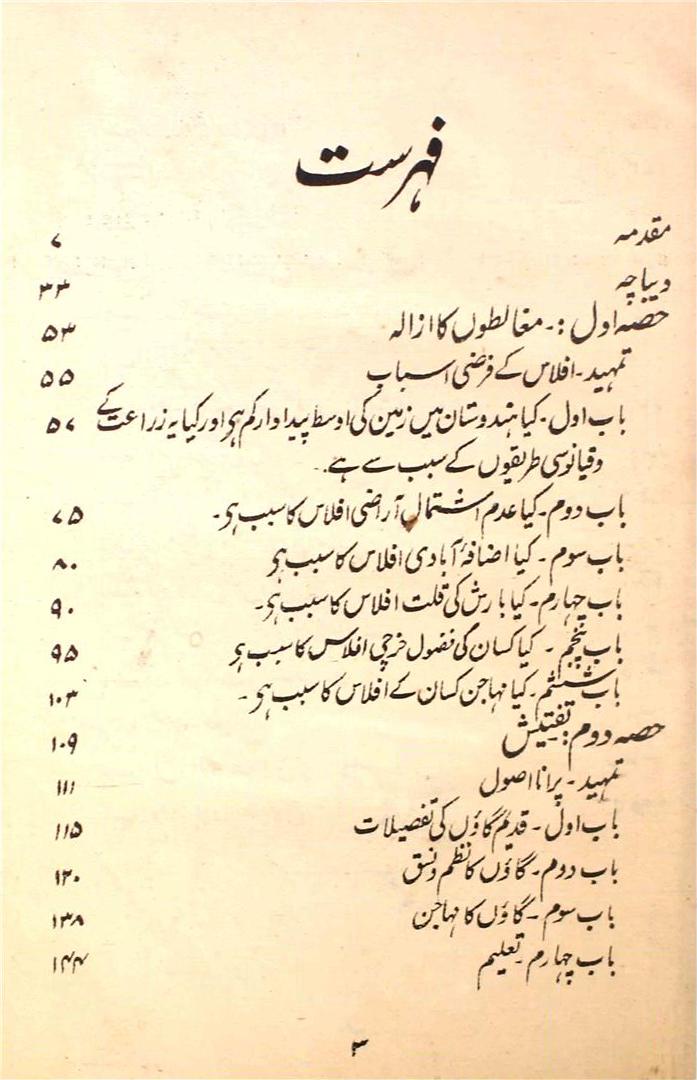 فہرست
مقدمہ ۷
دیباچہ ۳۳
حصہ اول :- مغالطوں کا ازالہ ۵۳
تمہید - افلاس کے فرضی اسباب ۵۵
باب اول - کیا ہندوستان میں زمین کی اوسط پیداوار کم ہے اور کیا یہ زراعت کے ۵۷
دقیانوسی طریقوں کے سبب سے ہے -
باب دوم - کیا عدم اشتمال آراضی افلاس کا سبب ہے - ۷۵
باب سوم - کیا اضافۂ آبادی افلاس کا سبب ہے ۸۰
باب چہارم - کیا بارش کی قلت افلاس کا سبب ہے - ۹۰
باب پنجم - کیا کسان کی فضول خرچی افلاس کا سبب ہے ۹۵
باب ششم - کیا مہاجن کسان کے افلاس کا سبب ہے - ۱۰۳
حصہ دوم : تفتیش ۱۰۹
تمہید - پرانا اصول ۱۱۱
باب اول - قدیم گاؤں کی تفصیلات ۱۱۵
باب دوم - گاؤں کا نظم ونسق ۱۲۰
باب سوم - گاؤں کا مہاجن ۱۳۸
باب چہارم - تعلیم ۱۴۴
۳